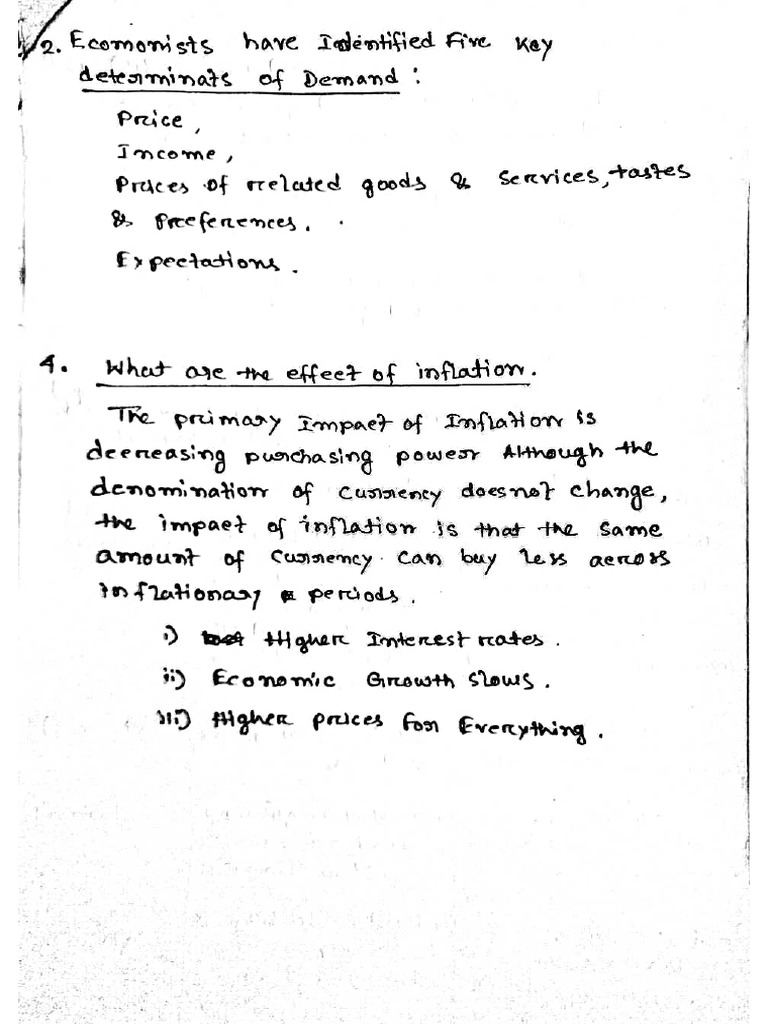 2. Economists have Identified Five Key
determinats of Demand :
Price,
Income,
Prices of related goods & Services, tastes
& Preferences.
Expectations.
4. What are the effect of inflation.
The primary Impact of Inflation is
decreasing purchasing power Although the
denomination of currency does not change,
the impact of inflation is that the same
amount of currency can buy less across
inflationary periods.
i) Higher Interest rates.
ii) Economic Growth slows.
iii) Higher prices for Everything.